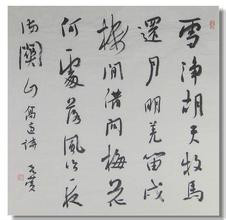 雪淨胡天牧馬
還月明羌笛戍
樓間借問梅花
何處落風吹一夜
滿關山 高適詩